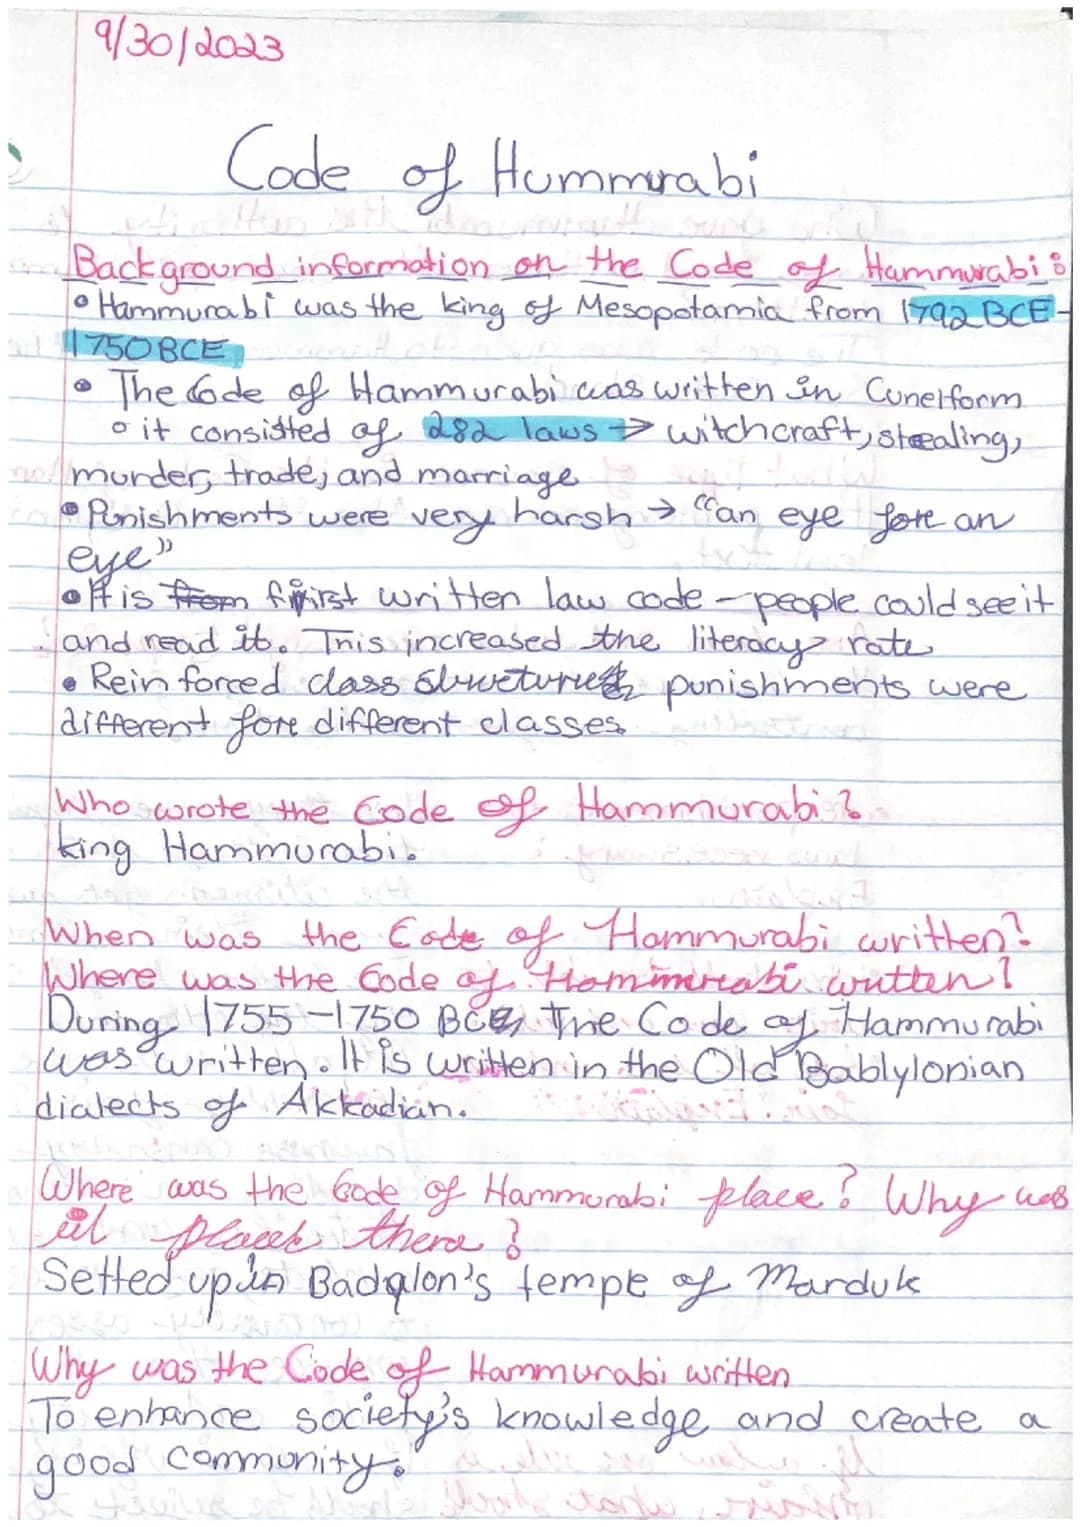 9/30/2023
Code of Hummurabi
Background information on the Code of Hammurabi:
• Hammurabi was the king of Mesopotamia from 1792 BCE-
1750 BCE
• The Code of Hammurabi was written in Cuneiform
◦ it consisted of 282 laws → witchcraft, stealing,
murder, trade, and marriage
• Punishments were very harsh → "an eye fore an
eye"
• It is from first written law code - people could see it
and read it. This increased the literacy rate
• Reinforced class structures punishments were
different fore different classes
Who wrote the Code of Hammurabi?
king Hammurabi.
When was the Code of Hammurabi written?
Where was the Code of Hammurabi written?
During 1755-1750 BCE, the Code of Hammurabi
was written. It is written in the Old Bablylonian
dialects of Akkadian.
Where was the Code of Hammurabi place? Why was
it placed there?
Setted up in Badylon's temple of Marduk
Why was the Code of Hammurabi written
To enhance society's knowledge and create a
good community.